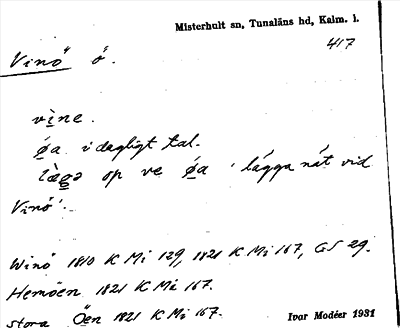 Misterhult sn, Tunaläns hd, Kalm. l.
417
Vinö ö.
vìne.
øa i dagligt tal.
lɛ̀gə op ve øa 'lägga nåt vid
Vinö'.
Winö 1810 K Mi 129, 1821 K Mi 167, GS 29.
Hemöen 1821 K Mi 167.
Stora Öen 1821 K Mi 167.
Ivar Modéer 1931